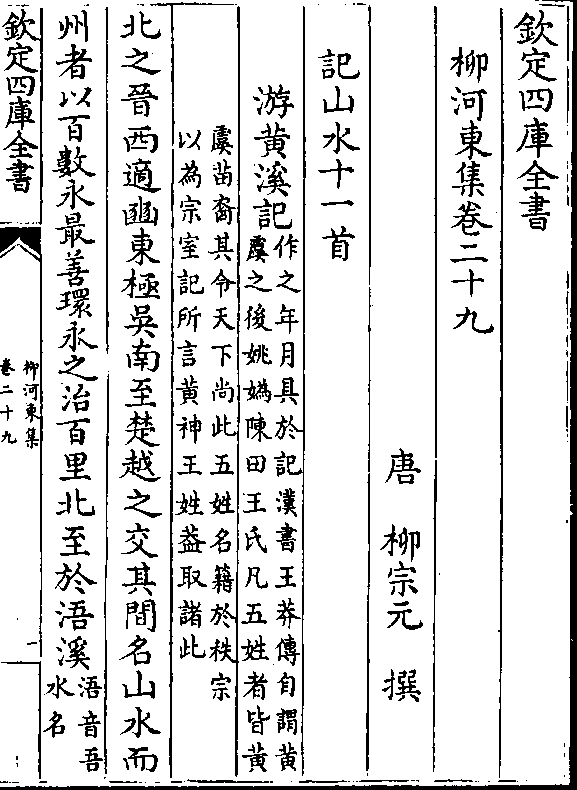 欽定四庫全書
柳河東集卷二十九
唐 柳宗元 撰
記山水十一首
游黄溪記
作之年月具於記漢書王莽傳自謂黄
虞之後姚媯陳田王氏凡五姓者皆黄
虞苗裔其令天下尚此五姓名籍於秩宗
以為宗室記所言黄神王姓葢取諸此
北之晉西適豳東極吳南至楚越之交其間名山水而
州者以百數永最善環永之治百里北至於浯溪
浯音吾
水名
欽定四庫全書
柳河東集
卷二十九
一